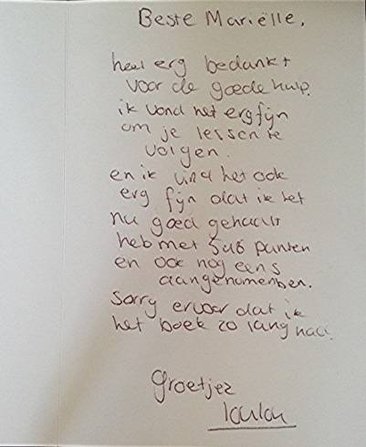 Beste Mariëlle,
heel erg bedankt
voor de goede hulp.
ik vond het erg fijn
om je lessen te
volgen.
en ik vind het ook
erg fijn dat ik het
nu goed gehaalt
heb met 546 punten
en ook nog eens
aangenomenben.
Sorry ervoor dat ik
het boek zo lang had.
Groetjes